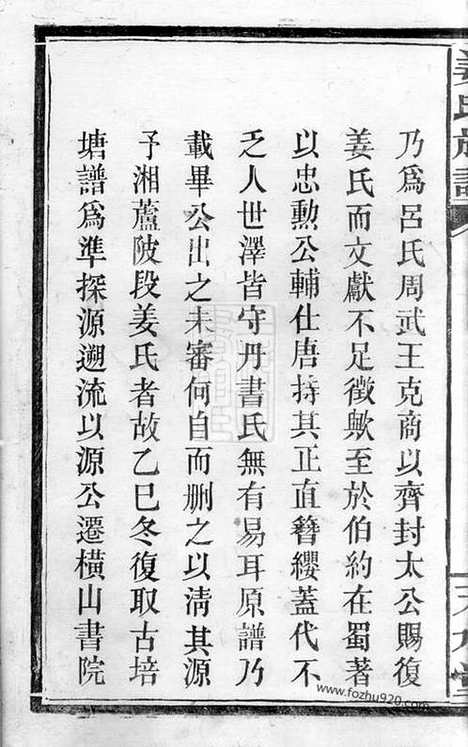 姜氏族譜
乃爲呂氏周武王克商以齊封太公賜復
姜氏而文獻不足徵歟至於伯約在蜀著
以忠勲公輔仕唐持其正直簪纓蓋代不
乏人世澤皆守丹書氏無有易耳原譜乃
載畢公出之未審何自而删之以清其源
予湘蘆陂段姜氏者故乙巳冬復取古培
塘譜爲準探源遡流以源公遷橫山書院
www.fozhu920.com